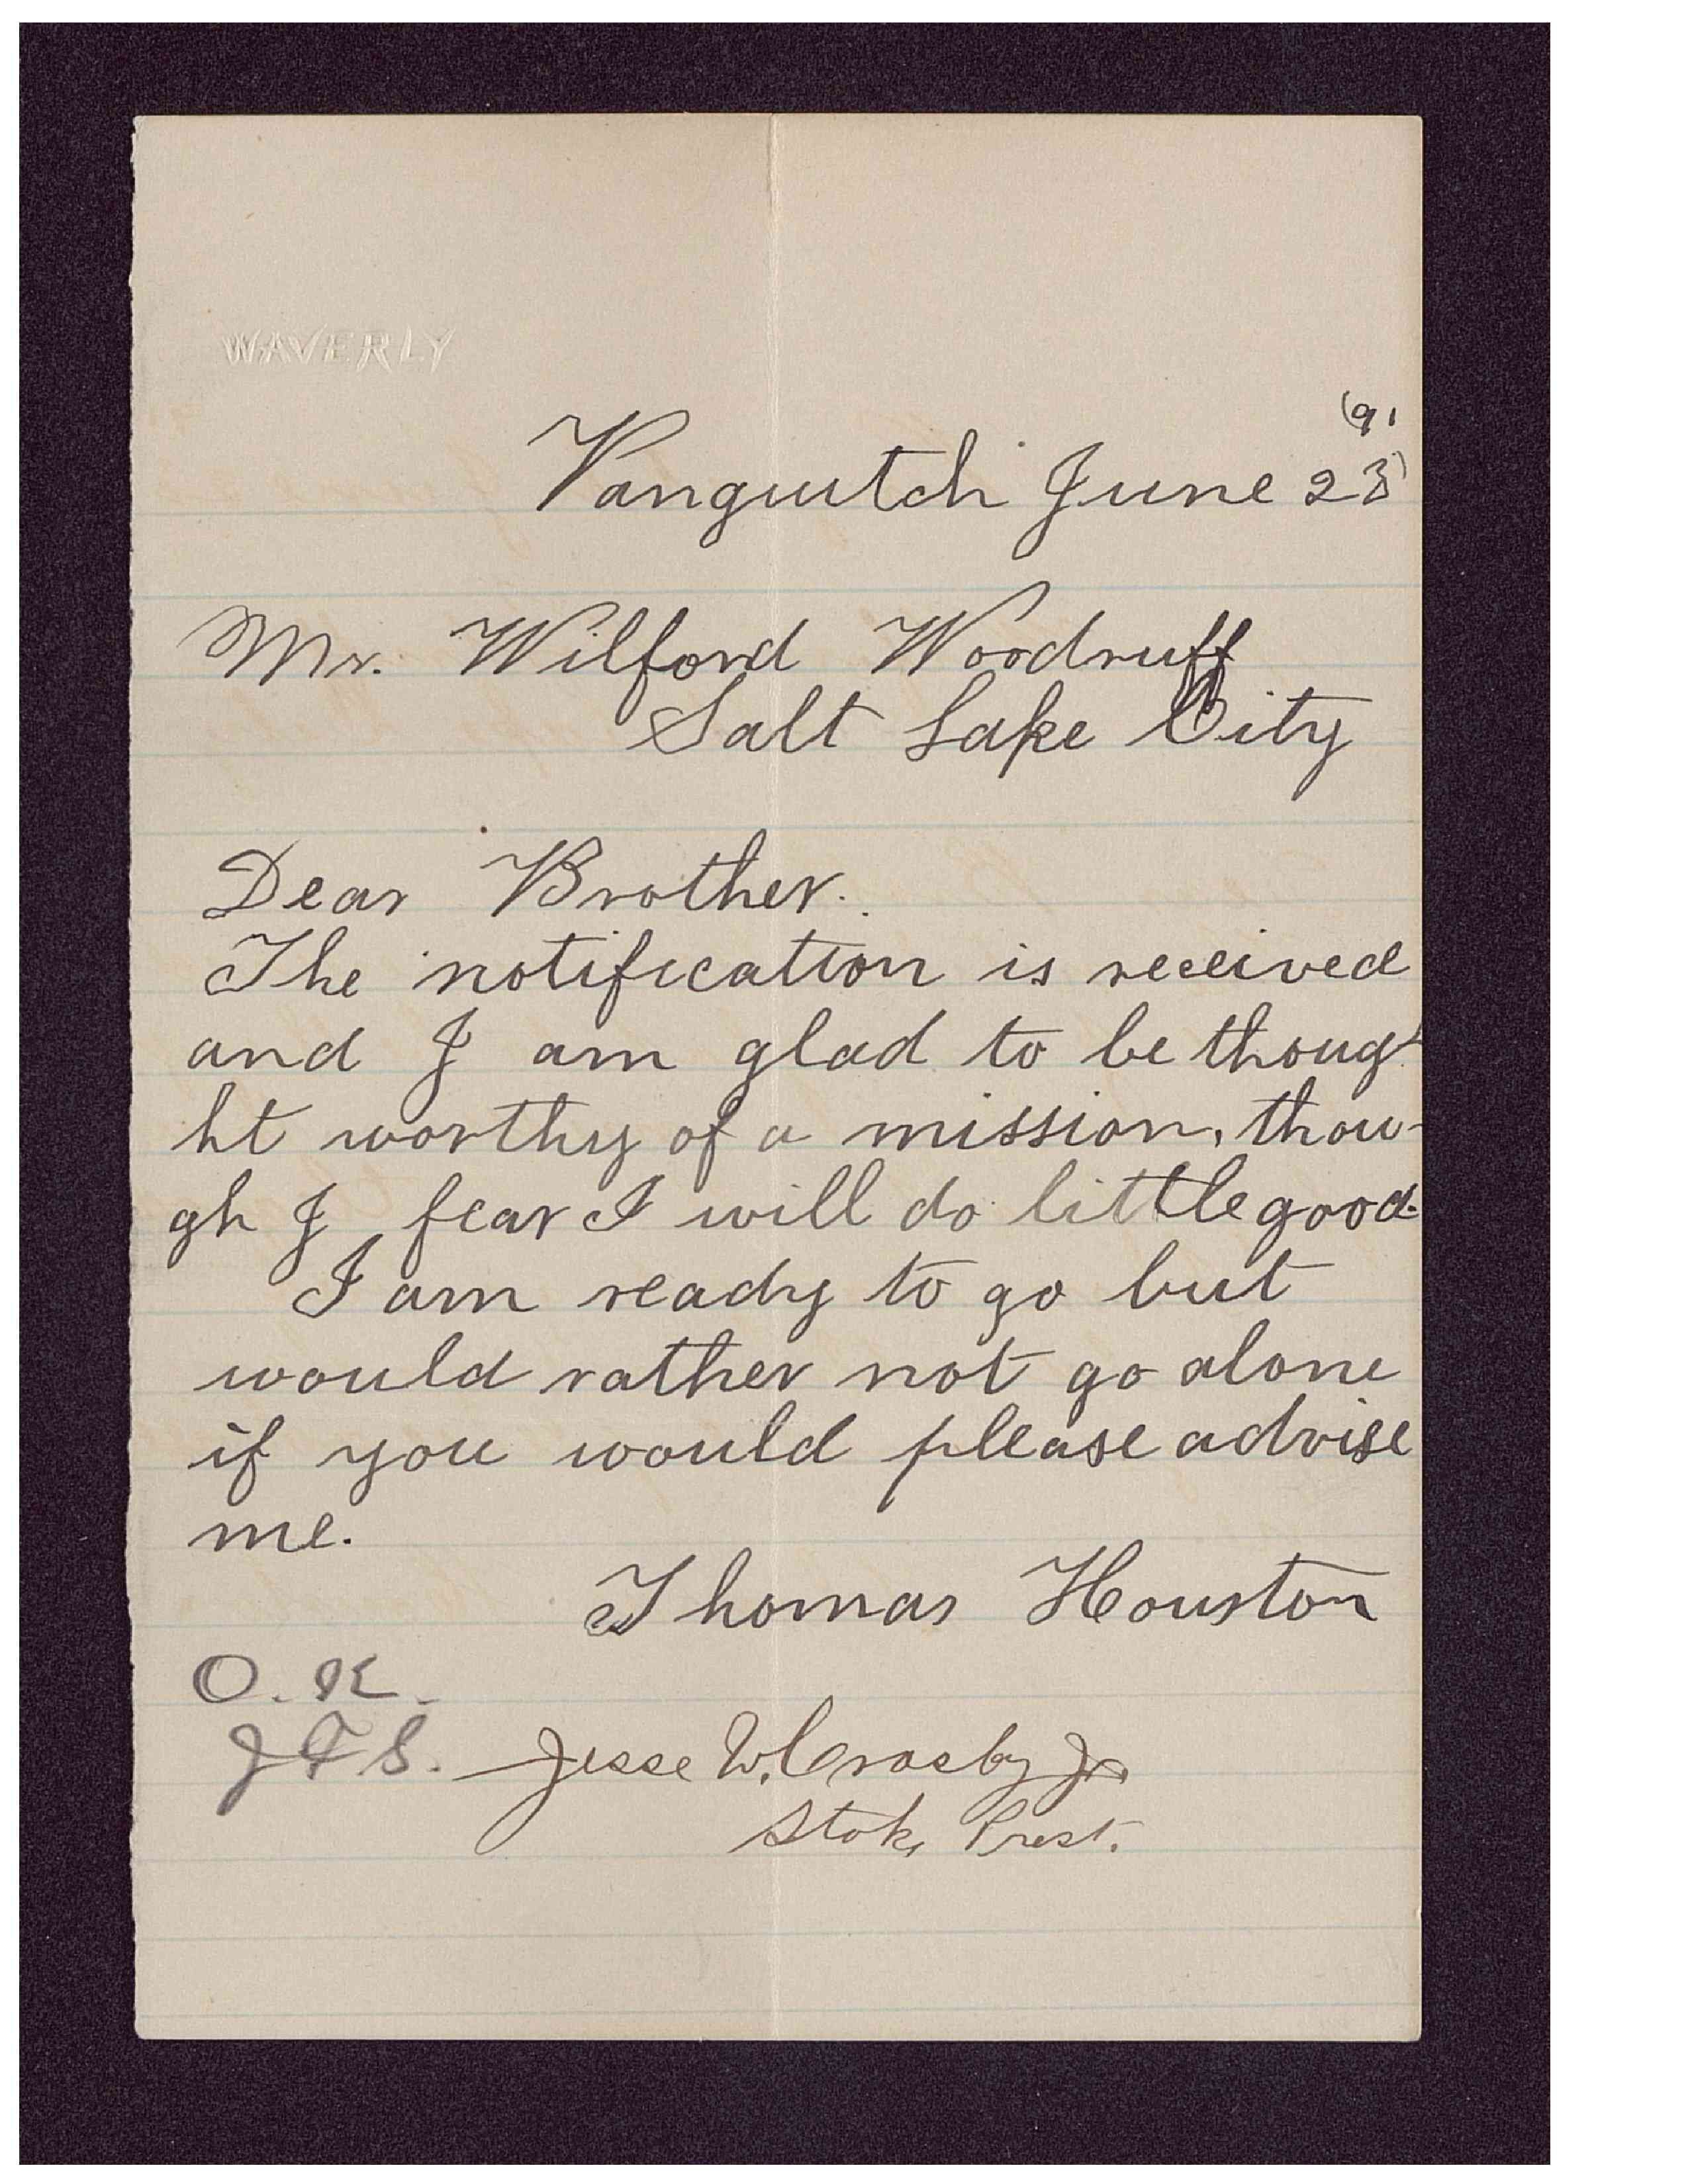 WAVERLY
(91
Panguitch June 23)
Mr. Wilford Woodruff
Salt Lake City
Dear Brother.
The notification is received
and I am glad to be thoug-
ht worthy of a mission, thou-
gh I fear I will do little good.
I am ready to go but
would rather not go alone
if you would please advise
me.
Thomas Houston
O.K.
J F S.
Jesse W. Crosby Jr.
Stake Prest.